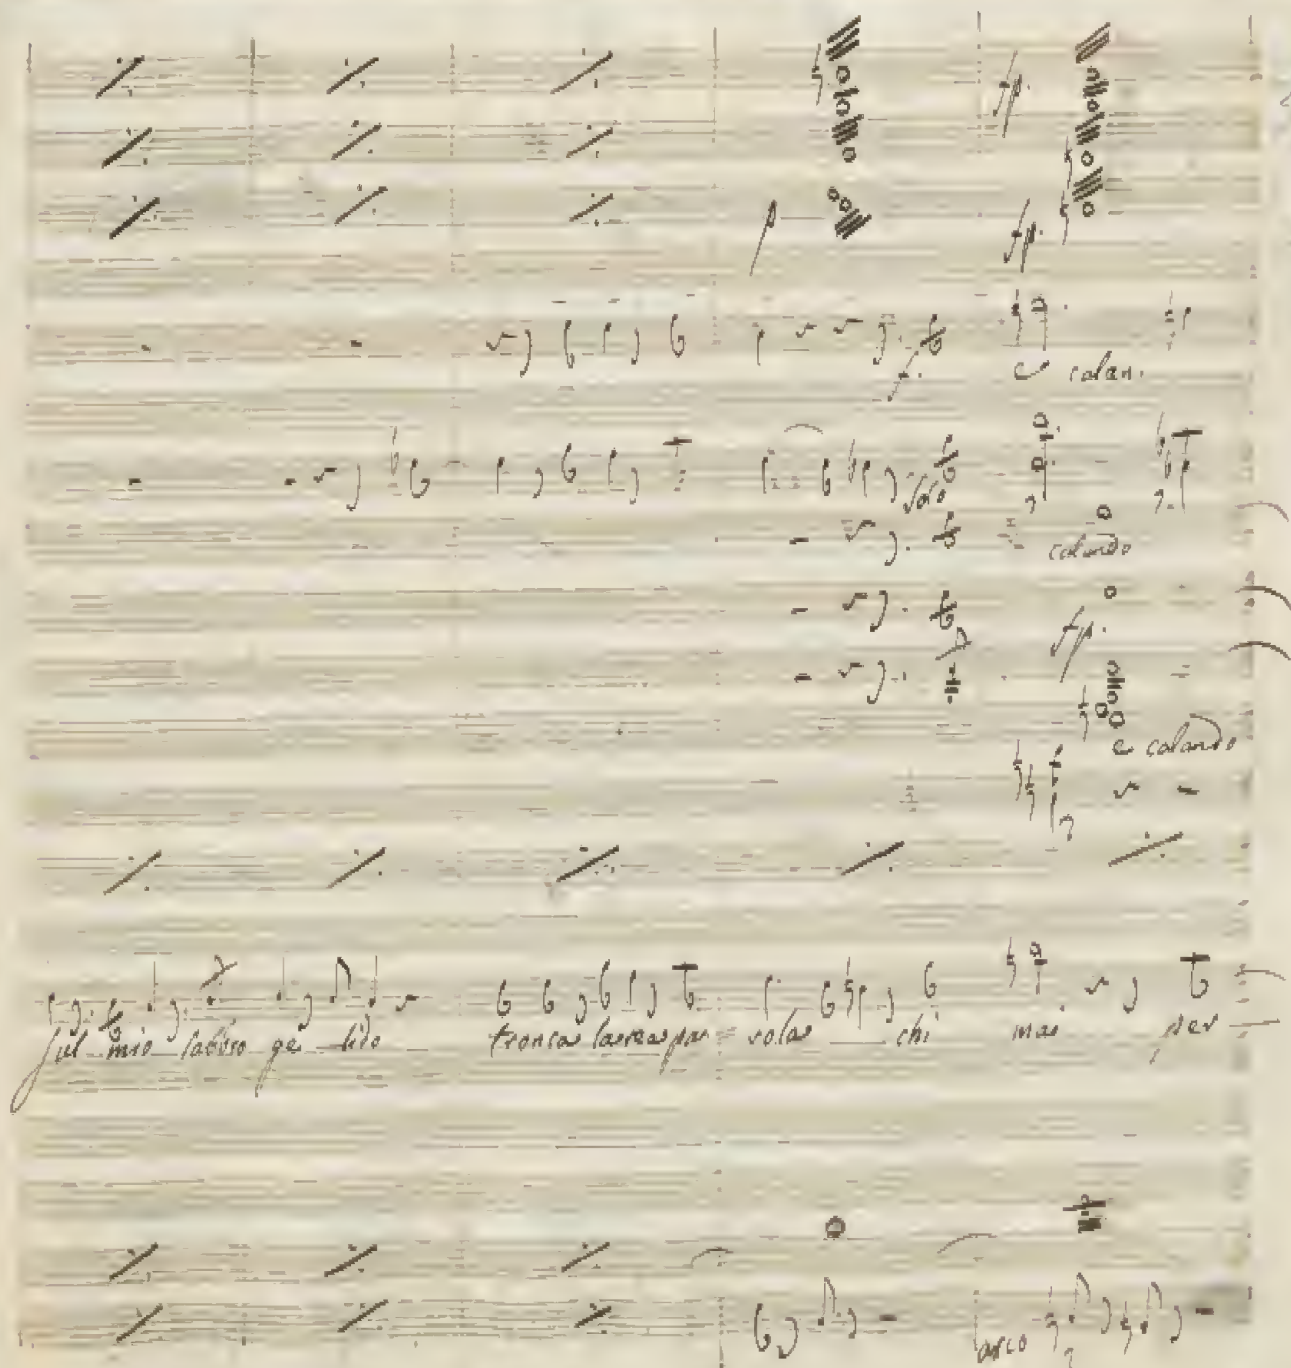 fp.
p fp.
f. e calan.
Solo
calando
fp.
fp.
e calando
sul mio labbro ge lido tronca la rea pa = rola chi mai per
arco